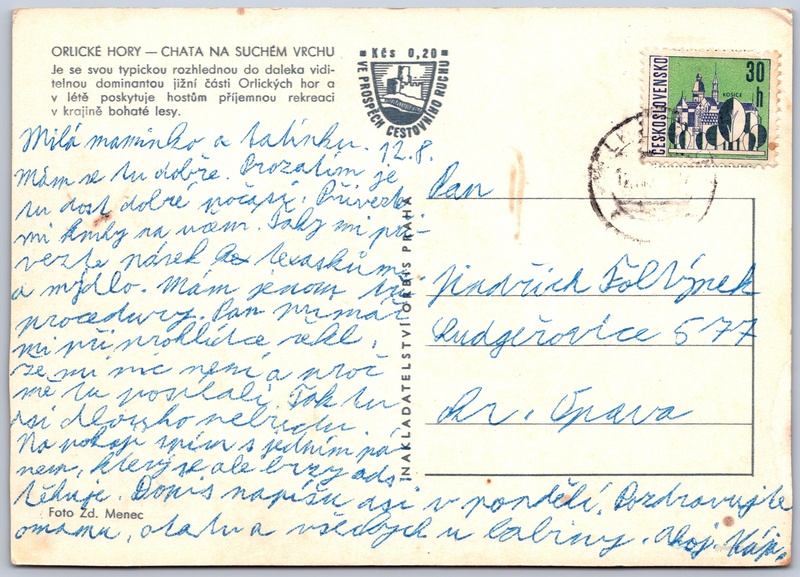 ORLICKÉ HORY — CHATA NA SUCHÉM VRCHU
Je se svou typickou rozhlednou do daleka vidi-
telnou dominantou jižní části Orlických hor a
v létě poskytuje hostům příjemnou rekreaci
v krajině bohaté lesy.
Kčs 0,20
VE PROSPĚCH CESTOVNÍHO RUCHU
ČESKOSLOVENSKO
30 h
KOŠICE
Milá maminko a tatínku. 12.8.
Mám se tu dobře. Prozatím je
tu dost dobré počasí. Přivezte
mi knihy na všem. Taky mi při-
vezte pásek texaskům
a mýdlo. Mám jenom tři
procedury. Pan primář
mi při prohlídce řekl,
že mi nic není a proč
mě tu posílali. Tak tu
asi dlouho nebudu.
Na pokoji spím s jedním pá
nem, který se ale brzy ods
těhuje. Dopis napíšu asi v pondělí. Pozdravujte
omamu, otatu a všechny u Labiny. Ahoj.
Pan
Jindřich Foltýnek
Ludgeřovice 577
okr. Opava
NAKLADATELSTVÍ ORBIS PRAHA
Foto Zd. Menec